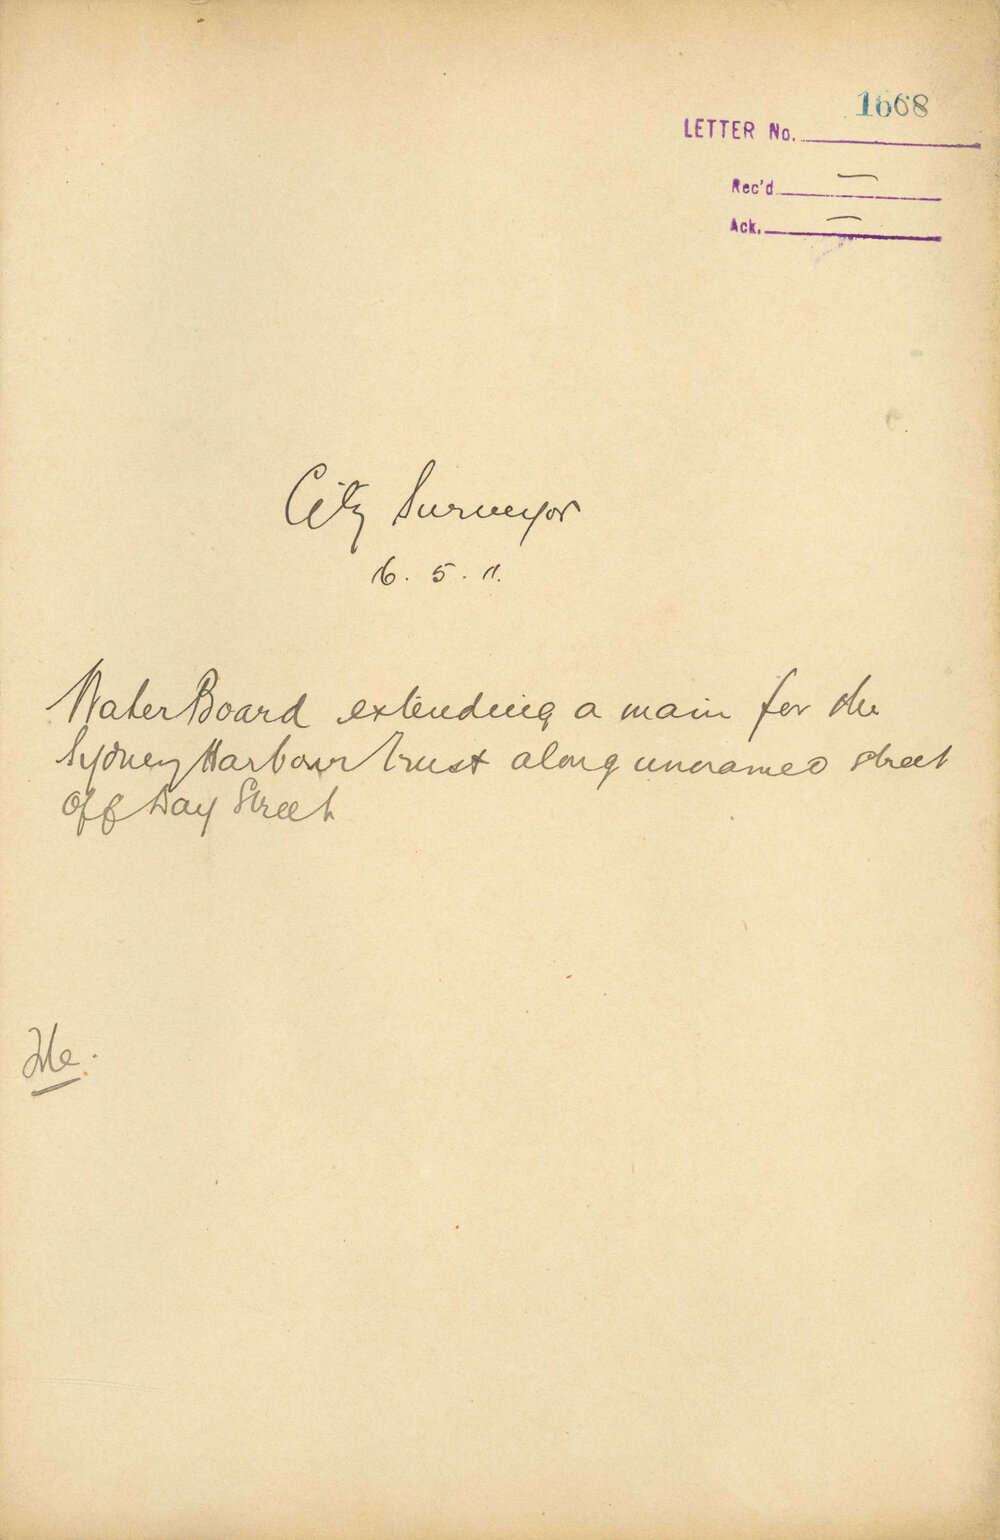 1668
LETTER No.
Rec'd —
Ack. —
City Surveyor
6. 5. 11.
Water Board extending a main for the
Sydney Harbour Trust along unnamed street
off Day Street
File.